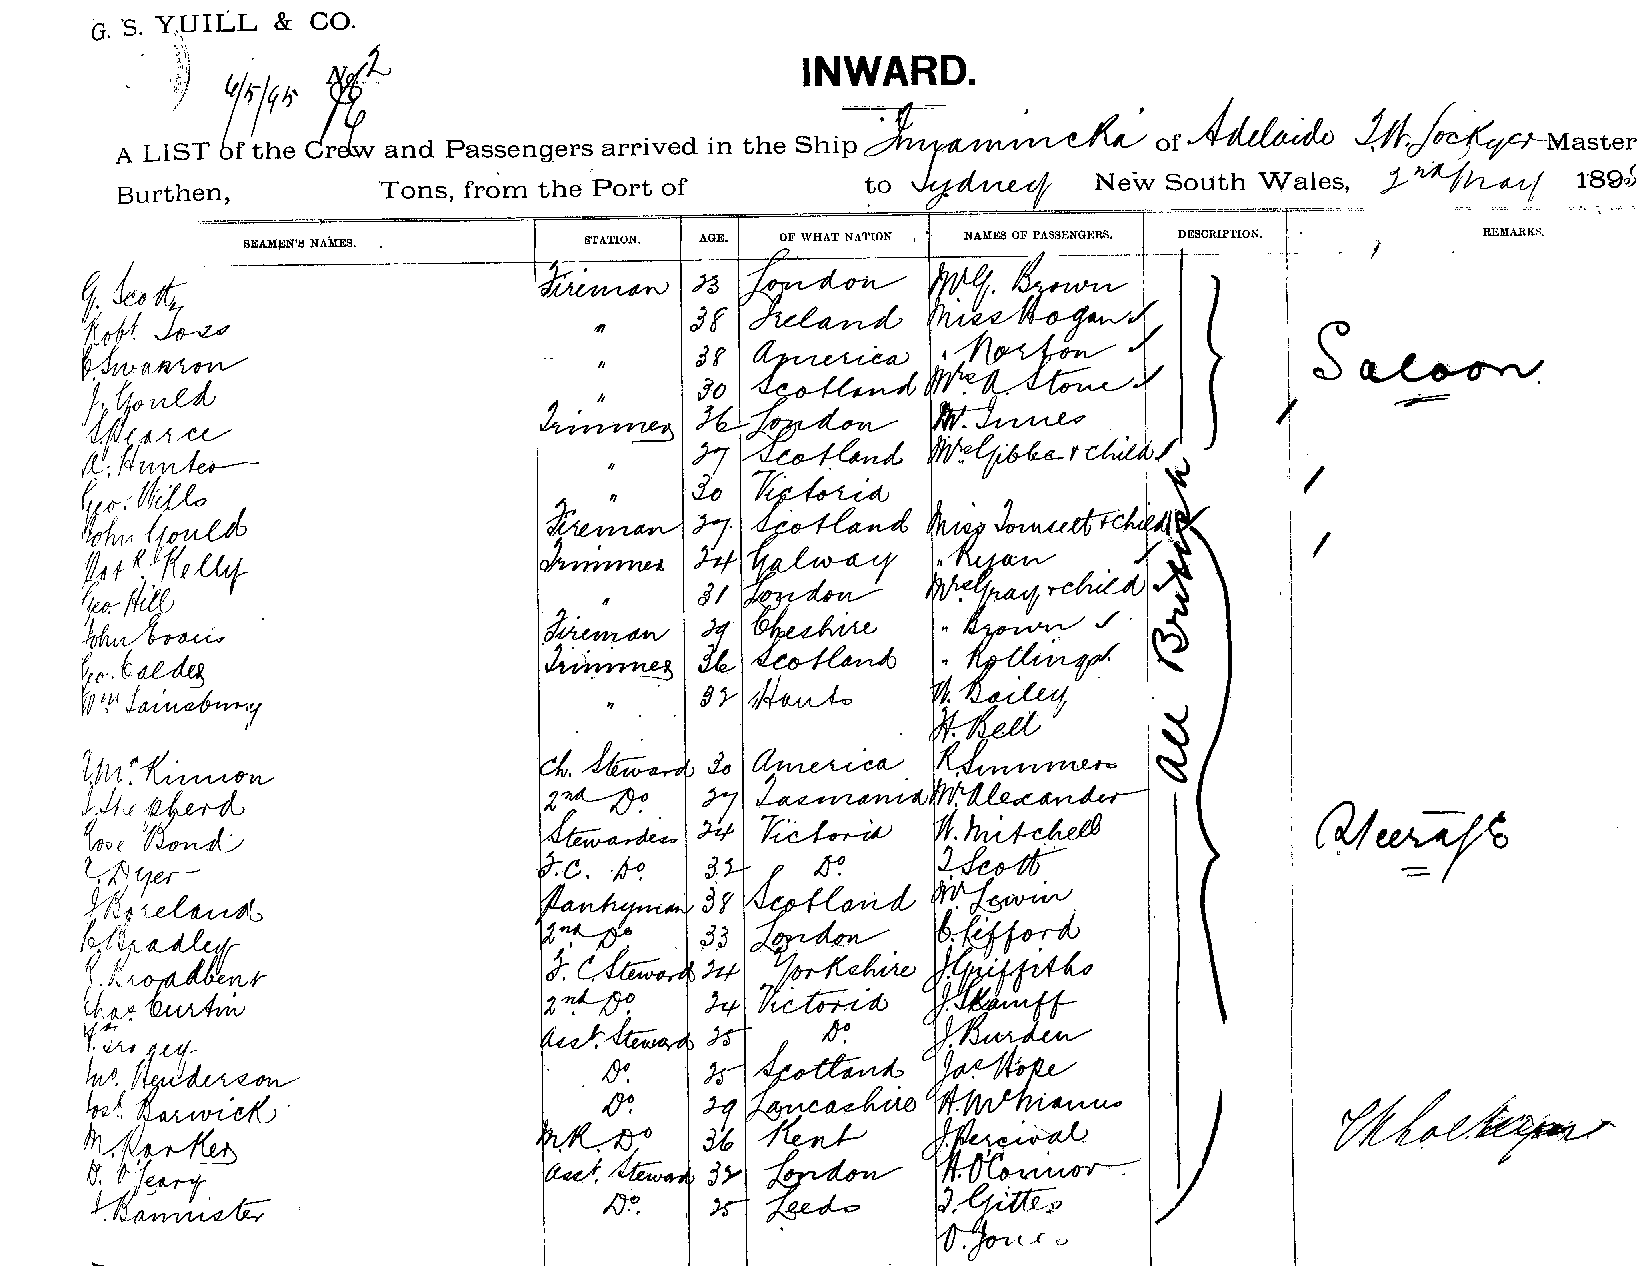 G. S. YUILL & CO.
6/5/95 No 2
INWARD.
A LIST of the Crew and Passengers arrived in the Ship Innamincka of Adelaide T.W. Lockyer Master
Burthen, Tons, from the Port of to Sydney New South Wales, 2nd May 1895
SEAMEN'S NAMES. STATION. AGE. OF WHAT NATION NAMES OF PASSENGERS. DESCRIPTION. REMARKS.
G. Scott Fireman 23 London Mr G. Brown
Robt Ross " 38 Ireland Miss Hogan
C Swanson " 38 America " Norton Saloon
J. Gould " 30 Scotland Mrs A. Stone
Pearce Trimmer 36 London Mr. Innes
A. Hunter " 27 Scotland Mrs Gibbs & child
Geo. Wills " 30 Victoria
John Gould Fireman 27 Scotland Miss Tomsett & Child
Patk Kelly Trimmer 24 Galway " Ryan
Geo. Hill " 31 London Mrs Gray & child
John Evans Fireman 29 Cheshire " Brown
Geo. Calder Trimmer 36 Scotland " Rollings
Wm Sainsbury " 32 Hants W. Bailey
H. Bell
All British
McKinnon Ch. Steward 30 America R. Simmers
Shepherd 2nd Do 27 Tasmania Mr. Alexander
Rose Bond Stewardess 24 Victoria W. Mitchell Steerage
Dyer F.C. Do 32 Do T. Scott
J Boreland Pantryman 38 Scotland Mr Lewin
C Bradley 2nd Do 33 London C. Gifford
R. Broadbent F. C. Steward 24 Yorkshire J. Griffiths
Chas Curtin 2nd Do 24 Victoria J. Skamff
Asst. Steward 25 Do J. Burden
Jno. Henderson Do 25 Scotland Jas Hope
Josh. Barwick Do 29 Lancashire A. McManus
M. Parker M.R. Do 36 Kent J. Percival
D. O'Leary Asst. Steward 32 London H. O'Connor
J. Bannister Do 25 Leeds T. Gittes
O. Jones